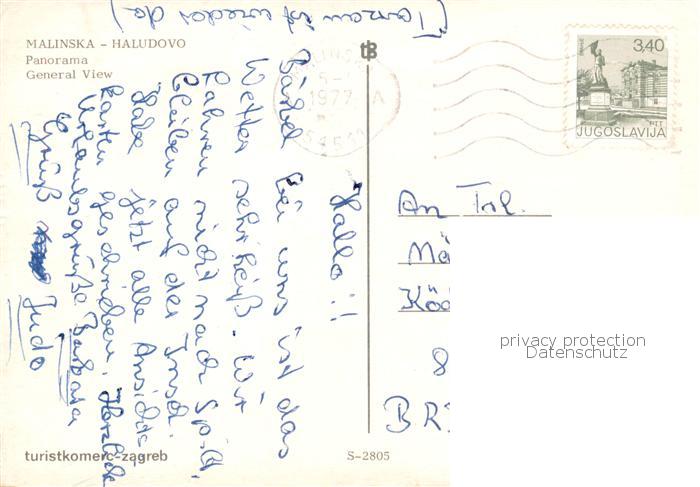 MALINSKA - HALUDOVO
Panorama
General View
(Tarzan ist wieder da)
Hallo!!
Bärbel bei uns ist das
Wetter sehr heiß. Wir
fahren nicht nach Split.
Bleiben auf der Insel.
Habe jetzt alle Ansichts
karten geschrieben. Herzliche
Urlaubsgrüße Barbara
Gruß Judo
turistkomerc-zagreb
S-2805
tB
1977
3,40
PTT
JUGOSLAVIJA
An Frl.
Mä
Kö
8
BR
privacy protection
Datenschutz